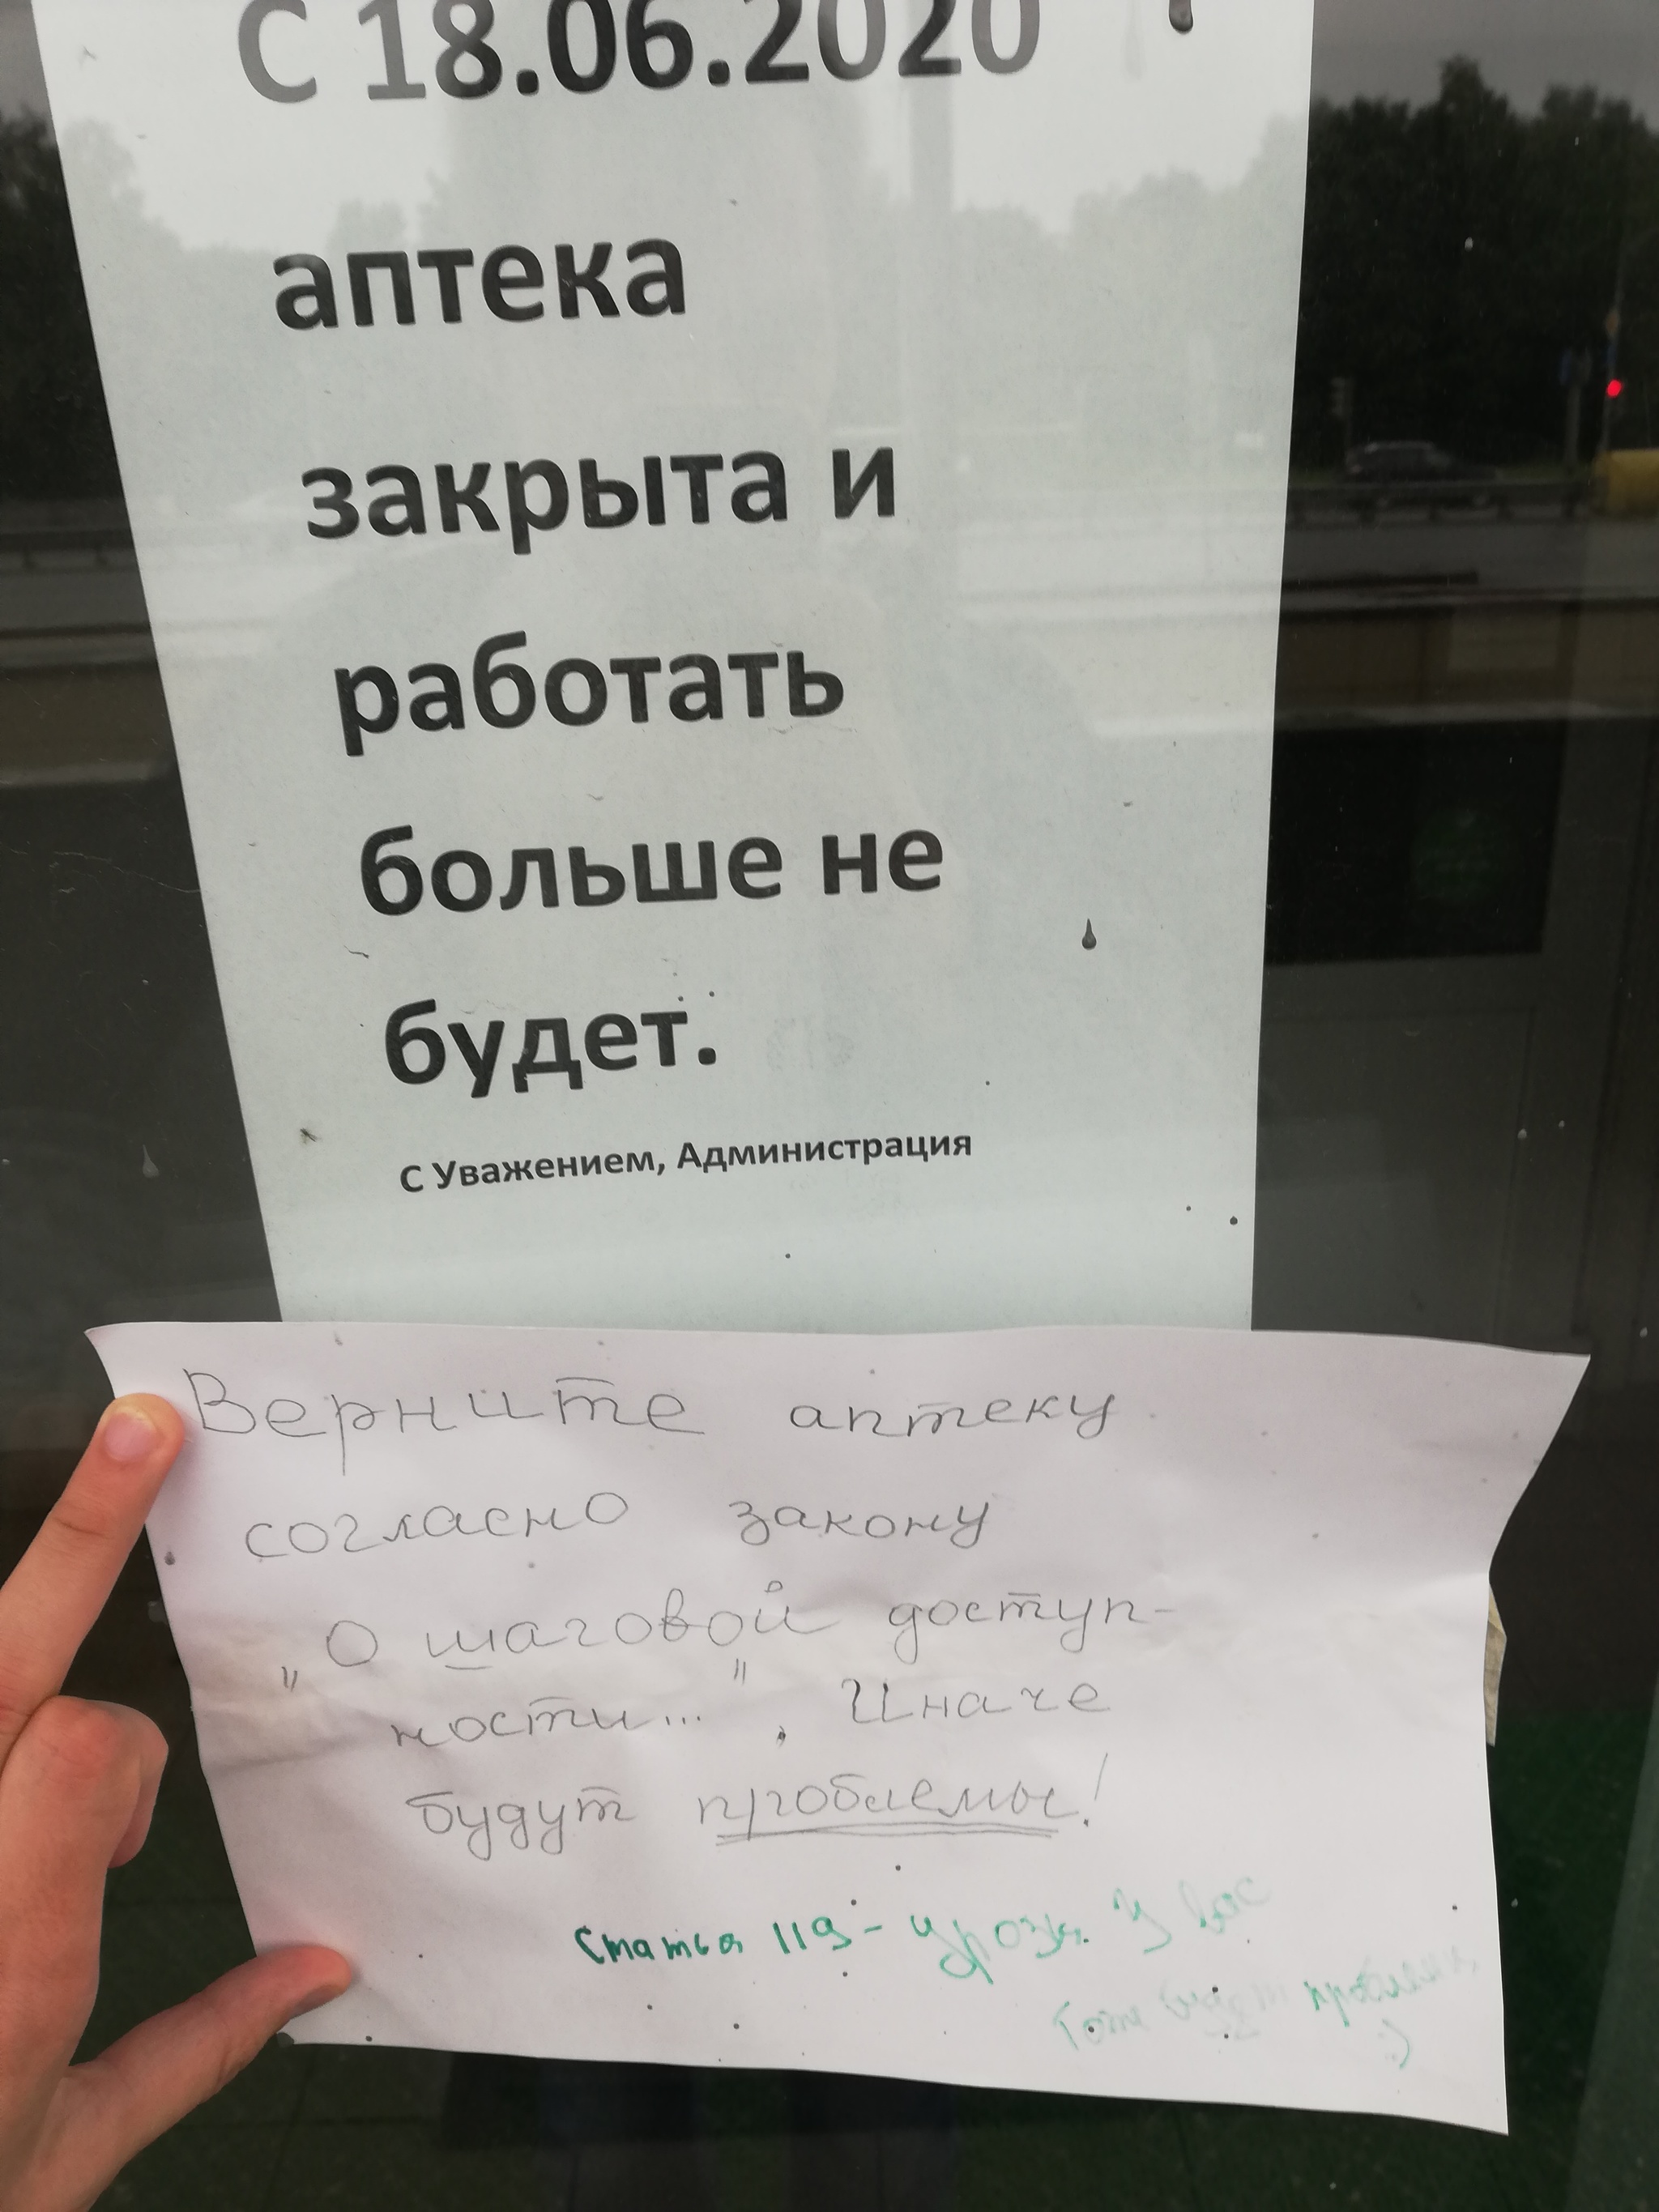 С 18.06.2020
аптека
закрыта и
работать
больше не
будет.
С Уважением, Администрация
Верните аптеку
согласно закону
„О шаговой доступ-
ности...", Иначе
будут проблемы!
Статья 119 - угроза. У вас
тоже будут проблемы
:)